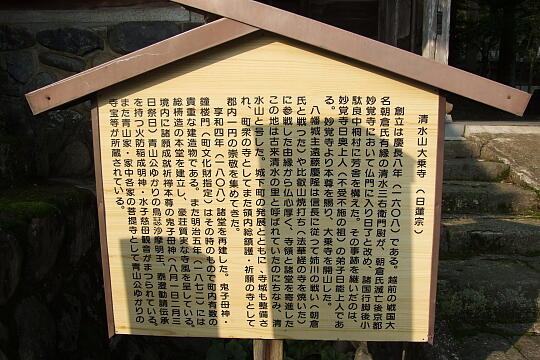 清水山大乗寺 （日蓮宗）
創立は慶長八年（一六〇八）である。越前の戦国大
名朝倉氏有縁の清水三右衛門尉が、朝倉氏滅亡後京都
妙覚寺において仏門に入り日了と改め、諸国行脚後小
駄良中桐村に芳舎を構えた。その事跡を継いだのは、
妙覚寺日奥上人（不受不施の祖）の弟子日能上人であ
る。妙覚寺より本尊を賜り、大乗寺を開山した。
八幡城主遠藤慶隆は信長に従って姉川の戦い（朝倉
氏と戦った）や比叡山焼打ち（法華経の寺も焼いた）
に参戦した由縁から信心厚く、寺領と諸堂を寄進した
この地は古来清水の里と呼ばれていたのにちなみ、清
水山と号した。城下町の発展とともに、寺域も整備さ
れ、町衆の寺としてまた領内総鎮護・祈願の寺として
郡内一円の崇敬を集めてきた。
享和四年（一八〇四）諸堂を再建した。鬼子母神・
鐘楼門（町文化財指定）はその時のもので町内有数の
貴重な建造物である。また明治五年（一八七二）には
総欅造の本堂を建立し、豪荘質実な寺風を呈している。
境内に諸願成就祈祷本尊の鬼子母神（八月一日二月三
日祭日）青山公ゆかりの烏瑟沙摩明王、泰澄勧請伝承
をもつ火防稲成明神・水子慈母観音がまつられている。
また青山家・家中各家の菩提寺として青山公ゆかりの
寺宝等が所蔵されている。